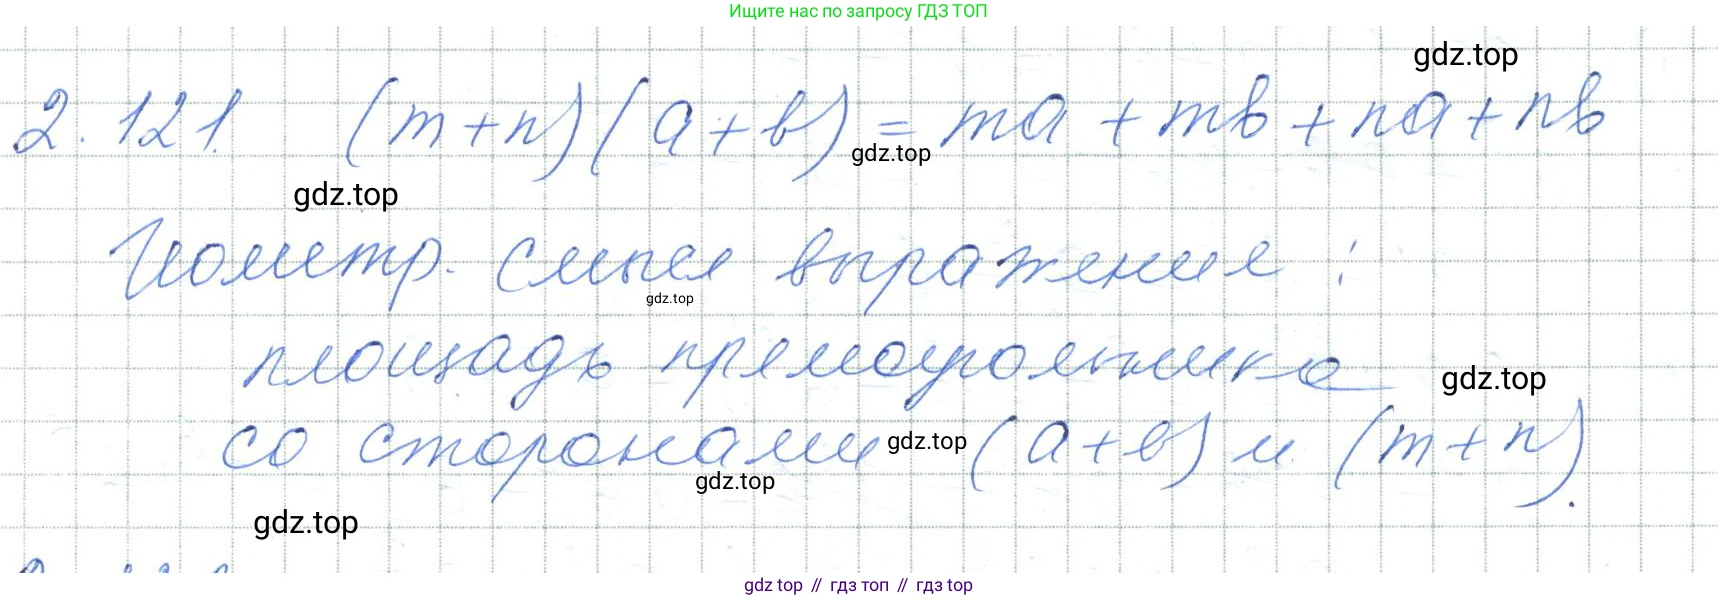 Ищите нас по запросу ГДЗ ТОП
gdz.top
2.121. (m+n)(a+b) = ma + mb + na + nb
gdz.top
gdz.top
Геометр. смысл выражения:
gdz.top
площадь прямоугольника
gdz.top
со сторонами (a+b) и (m+n).
gdz.top
gdz.top
gdz.top
gdz top // гдз топ // гдз top